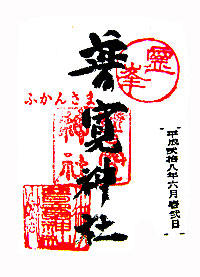 霊峯
普寛神社
ふかんさま
平成弐拾八年六月壱弐日